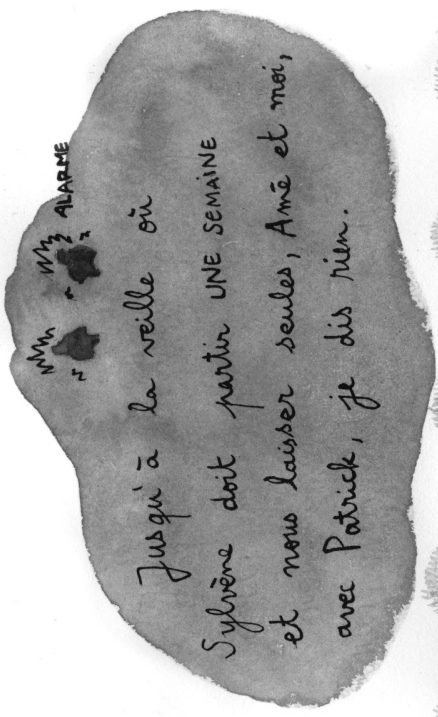 ALARME
Jusqu'à la veille où
Sylvène doit partir UNE SEMAINE
et nous laisser seules, Amé et moi,
avec Patrick, je dis rien.